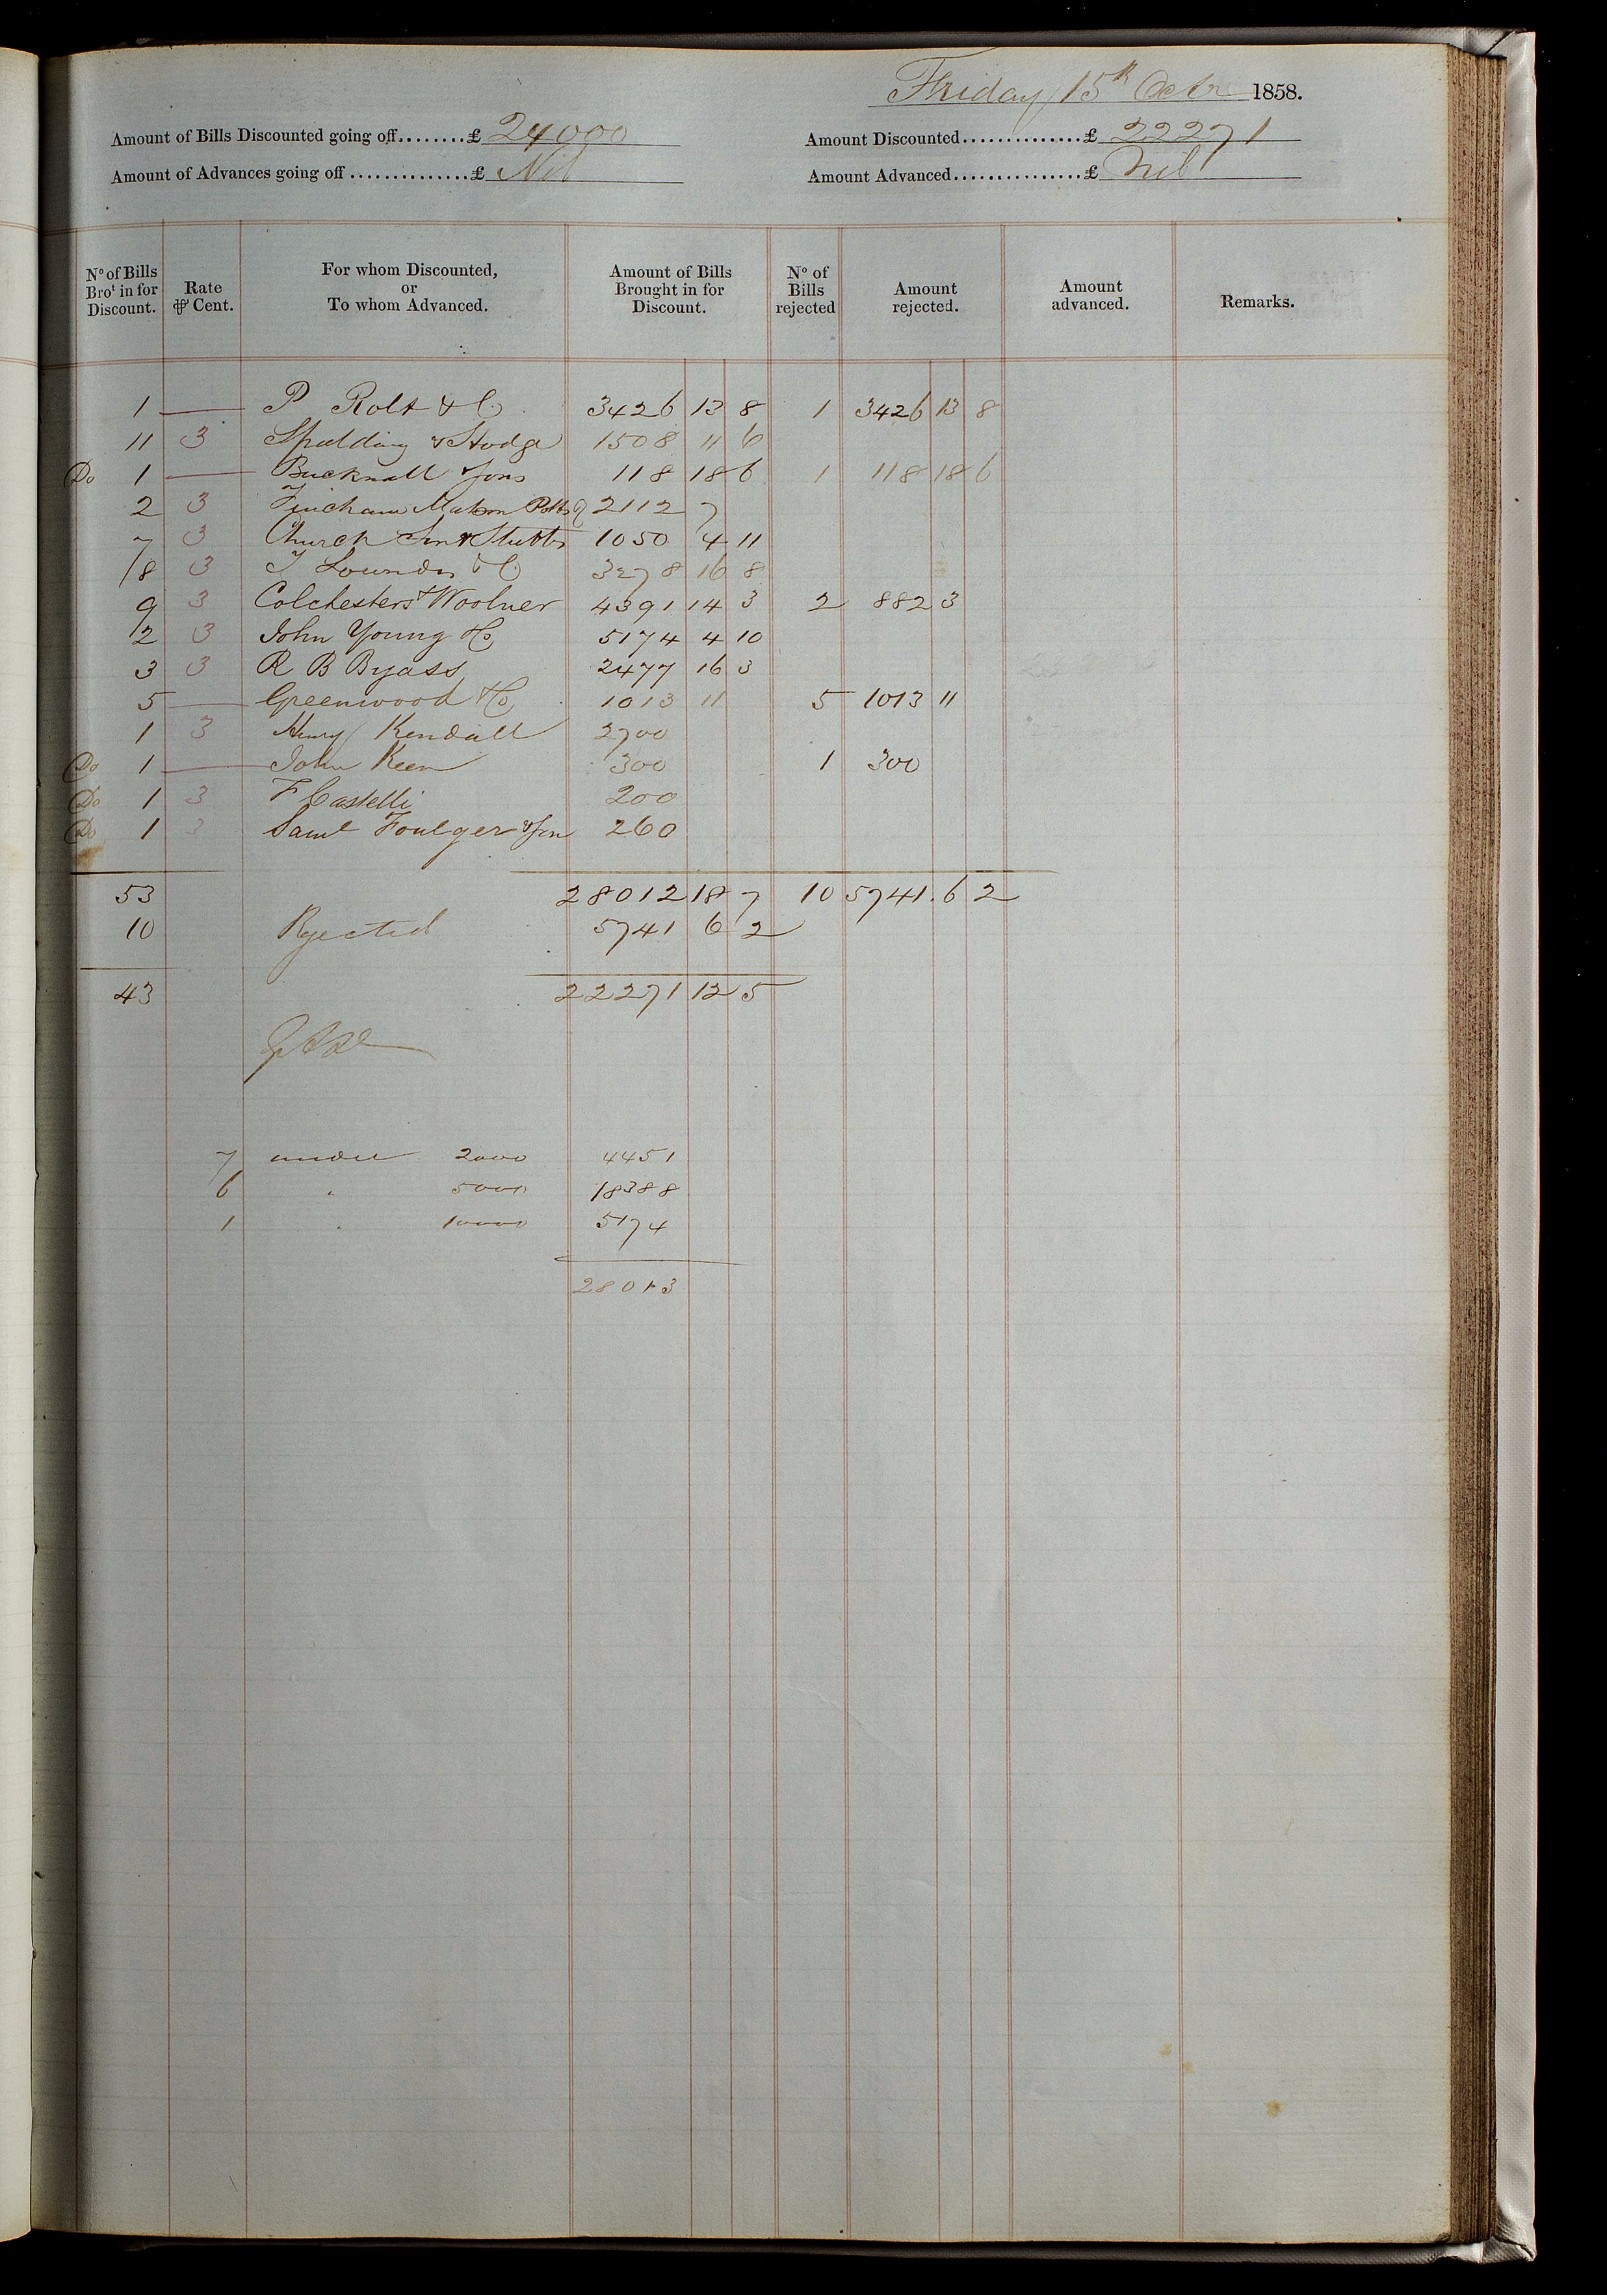 Friday 15th Octr 1858.
Amount of Bills Discounted going off........£ 24000 Amount Discounted..............£ 22271
Amount of Advances going off ..............£ Nil Amount Advanced...............£ Nil
No of Bills Brot in for Discount. Rate ⅌ Cent. For whom Discounted, or To whom Advanced. Amount of Bills Brought in for Discount. No of Bills rejected Amount rejected. Amount advanced. Remarks.
1 — P Rolt & Co 3426 13 8 1 3426 13 8
11 3 Spalding & Hodge 1508 11 6
Do 1 — Bucknall & Sons 118 18 6 1 118 18 6
2 3 Fincham 2112 7
7 3 Church Son & Stubbs 1050 4 11
8 3 T Lowndes & Co 3278 16 8
9 3 Colchesters & Woolner 4391 14 3 2 882 3
2 3 John Young & Co 5174 4 10
3 3 R B Byass 2477 16 3
5 — Greenwood & Co 1013 11 5 1013 11
1 3 Henry Kendall 2700
Do 1 — John Keen 300 1 300
Do 1 3 F Castelli 200
Do 1 3 Saml Foulger & Son 260
53 28012 18 7 10 5741.6 2
10 Rejected 5741 6 2
43 22271 12 5
7 under 2000 4451
6 " 5000 18388
1 " 10000 5174
28013